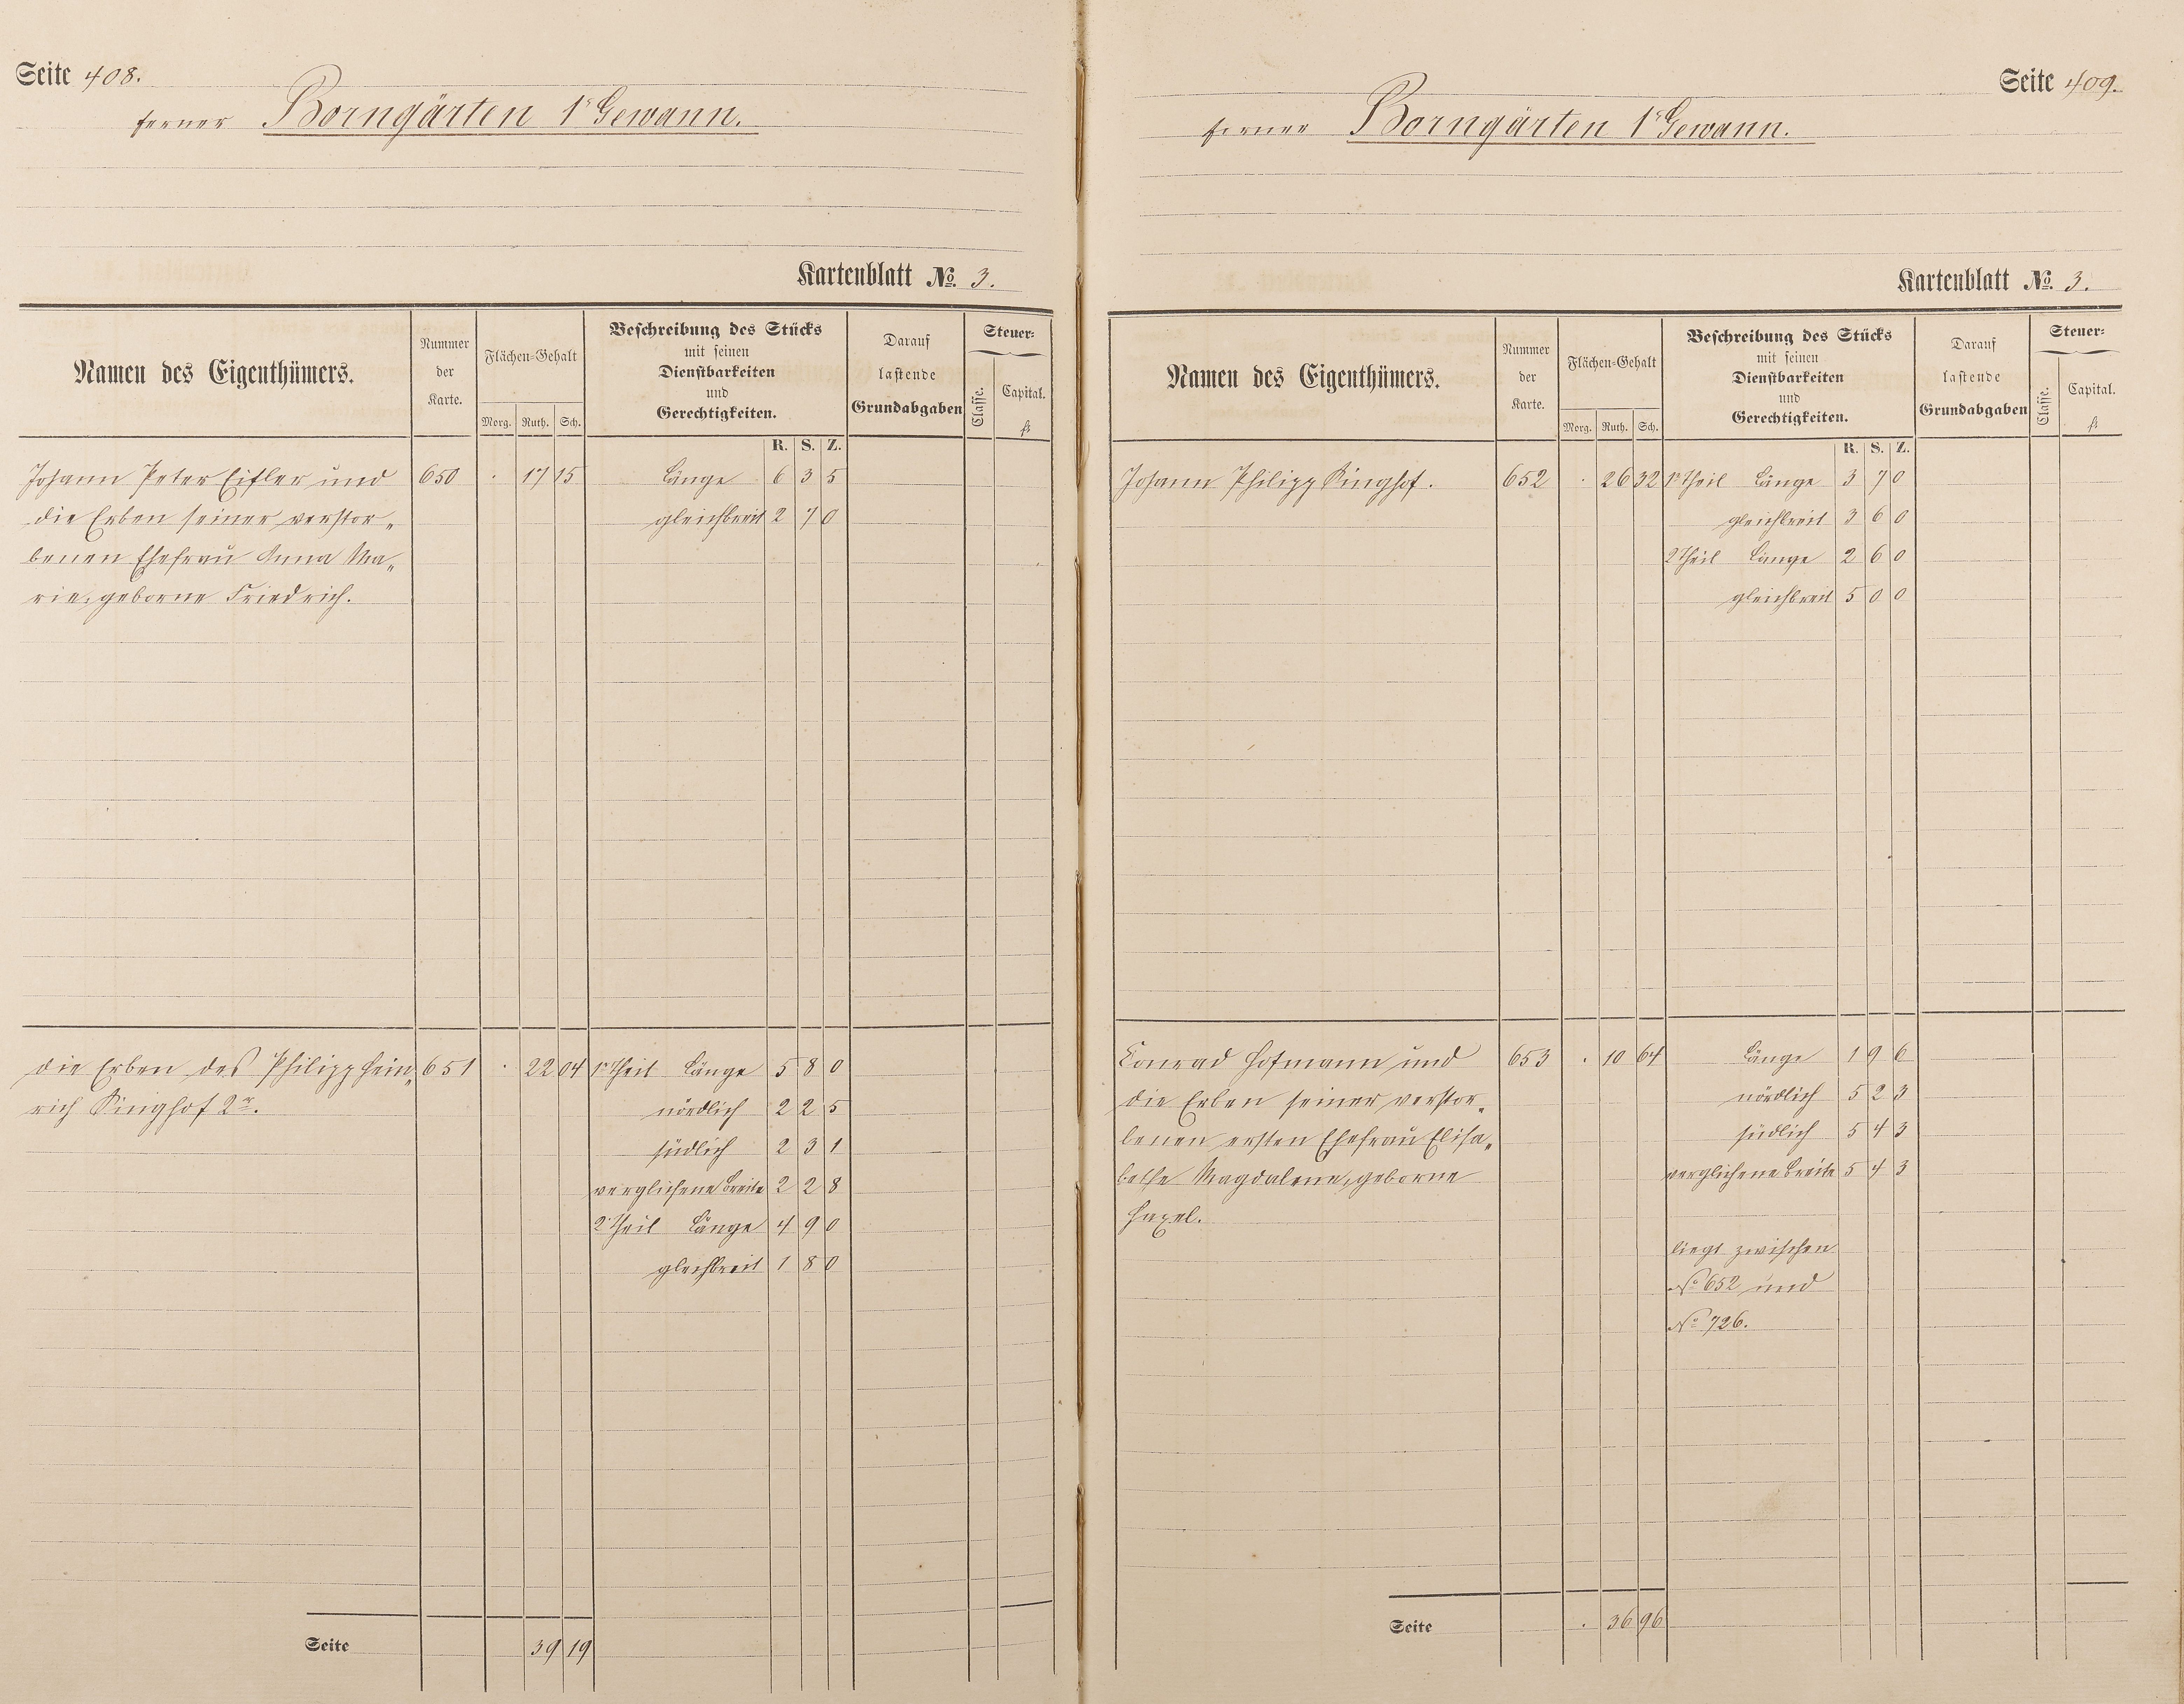 Seite 408.
ferner Borngärten 1r Gewann.
Kartenblatt No. 3.
Namen des Eigenthümers.
Nummer
der
Karte.
Flächen=Gehalt
Morg. Ruth. Sch.
Beschreibung des Stücks
mit seinen
Dienstbarkeiten
und
Gerechtigkeiten.
Darauf
lastende
Grundabgaben
Steuer=
Classe. Capital.
fl
R. S. Z.
Johann Peter Eifler und 650 . 17 15 Länge 6 3 5
die Erben seiner verstor„ gleichbreit 2 7 0
benen Ehefrau Anna Ma„
rie, geborne Friedrich.
die Erben des Philipp Hein„ 651 . 22 04 1r Theil Länge 5 8 0
rich Kinghof 2r. nördlich 2 2 5
südlich 2 3 1
verglichene Breite 2 2 8
2 Theil Länge 4 9 0
gleichbreit 1 8 0
Seite 39 19
Seite 409.
ferner Borngärten 1r Gewann.
Kartenblatt No. 3.
Namen des Eigenthümers.
Nummer
der
Karte.
Flächen=Gehalt
Morg. Ruth. Sch.
Beschreibung des Stücks
mit seinen
Dienstbarkeiten
und
Gerechtigkeiten.
Darauf
lastende
Grundabgaben
Steuer=
Classe. Capital.
fl
R. S. Z.
Johann Philipp Kinghof. 652 . 26 32 1r Theil Länge 3 7 0
gleichbreit 3 6 0
2 Theil Länge 2 6 0
gleichbreit 5 0 0
Conrad Hofmann und 653 . 10 64 Länge 1 9 6
die Erben seiner verstor„ nördlich 5 2 3
benen ersten Ehefrau Elisa„ südlich 5 4 3
bethe Magdalene, geborne verglichene Breite 5 4 3
Hexel.
liegt zwischen
No 652 und
No 726.
Seite . 36 96